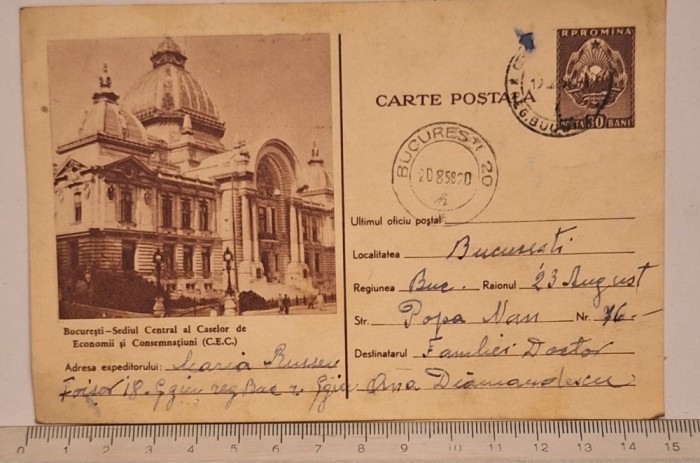 R P ROMINA
POSTA 30 BANI
CARTE POSTALĂ
REG. BUCU
BUCUREȘTI 20
20 8 58 20
Ultimul oficiu poștal
Localitatea București
Regiunea Buc. Raionul 23 August
Str. Popa Nan Nr. 76
Destinatarul Familiei Doctor
Ana Diamandescu
București-Sediul Central al Caselor de
Economii și Consemnațiuni (C.E.C.)
Adresa expeditorului: Maria Russev
Foișor 18. reg Buc r.
0 1 2 3 4 5 6 7 8 9 10 11 12 13 14 15